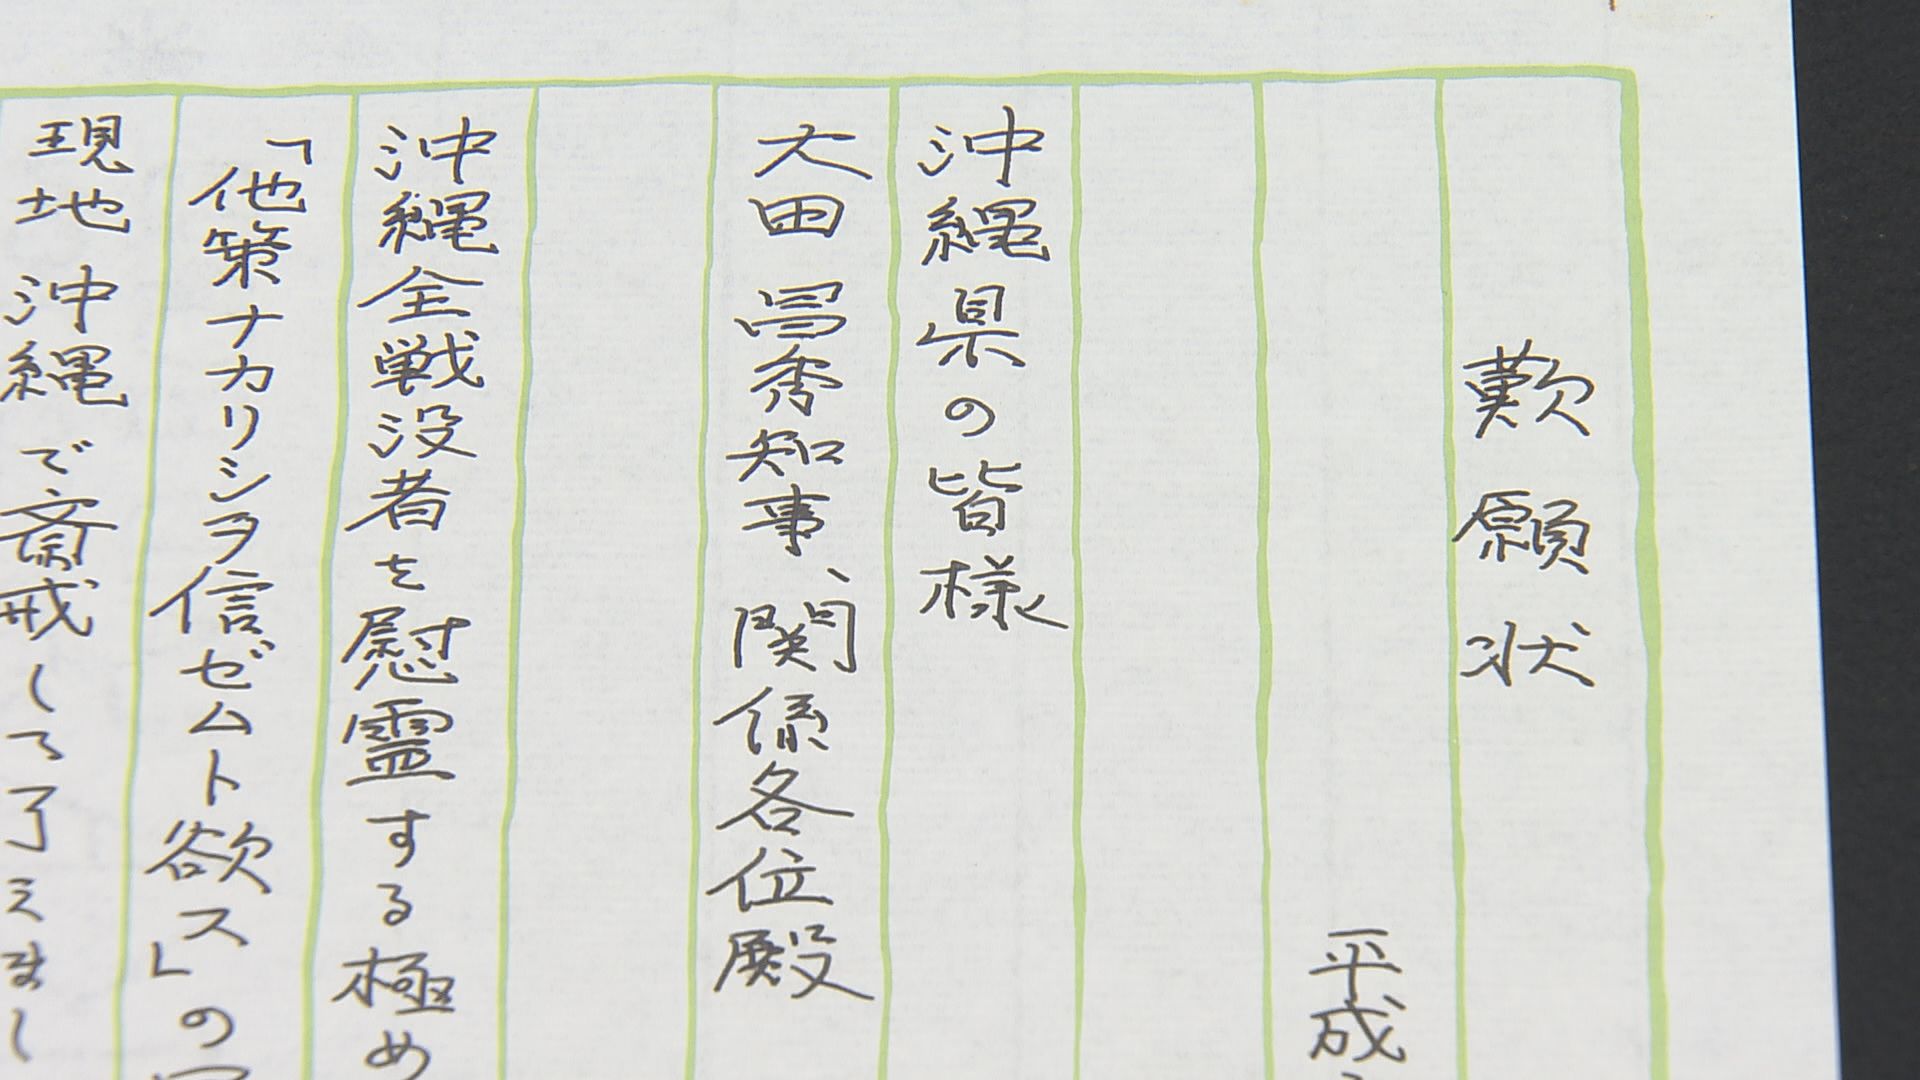 歎願状
平成
沖縄県の皆様
大田昌秀知事、関係各位殿
沖縄全戦没者を慰霊する極め
「他策ナカリシヲ信ゼムト欲ス」の
現地沖縄で斎戒し了えまし